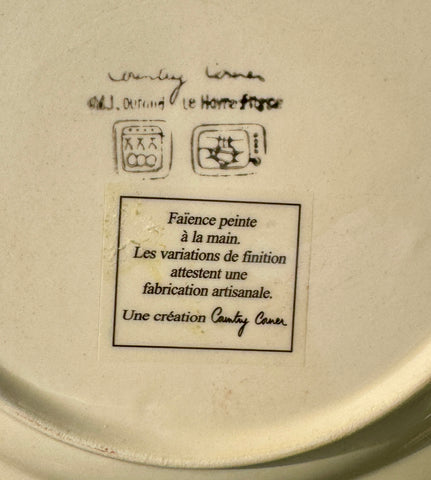 Country Corner
M.J. Durand Le Havre France
Faïence peinte
à la main.
Les variations de finition
attestent une
fabrication artisanale.
Une création Country Corner